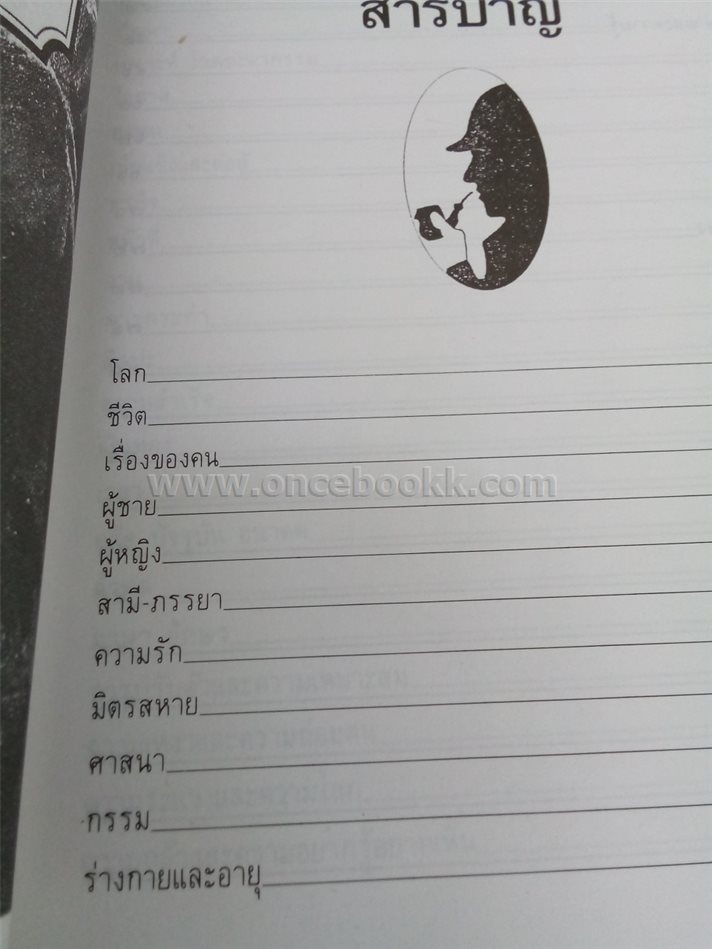 สารบาญ
โลก
ชีวิต
เรื่องของคน
www.oncebookk.com
ผู้ชาย
ผู้หญิง
สามี-ภรรยา
ความรัก
มิตรสหาย
ศาสนา
กรรม
ร่างกายและอายุ